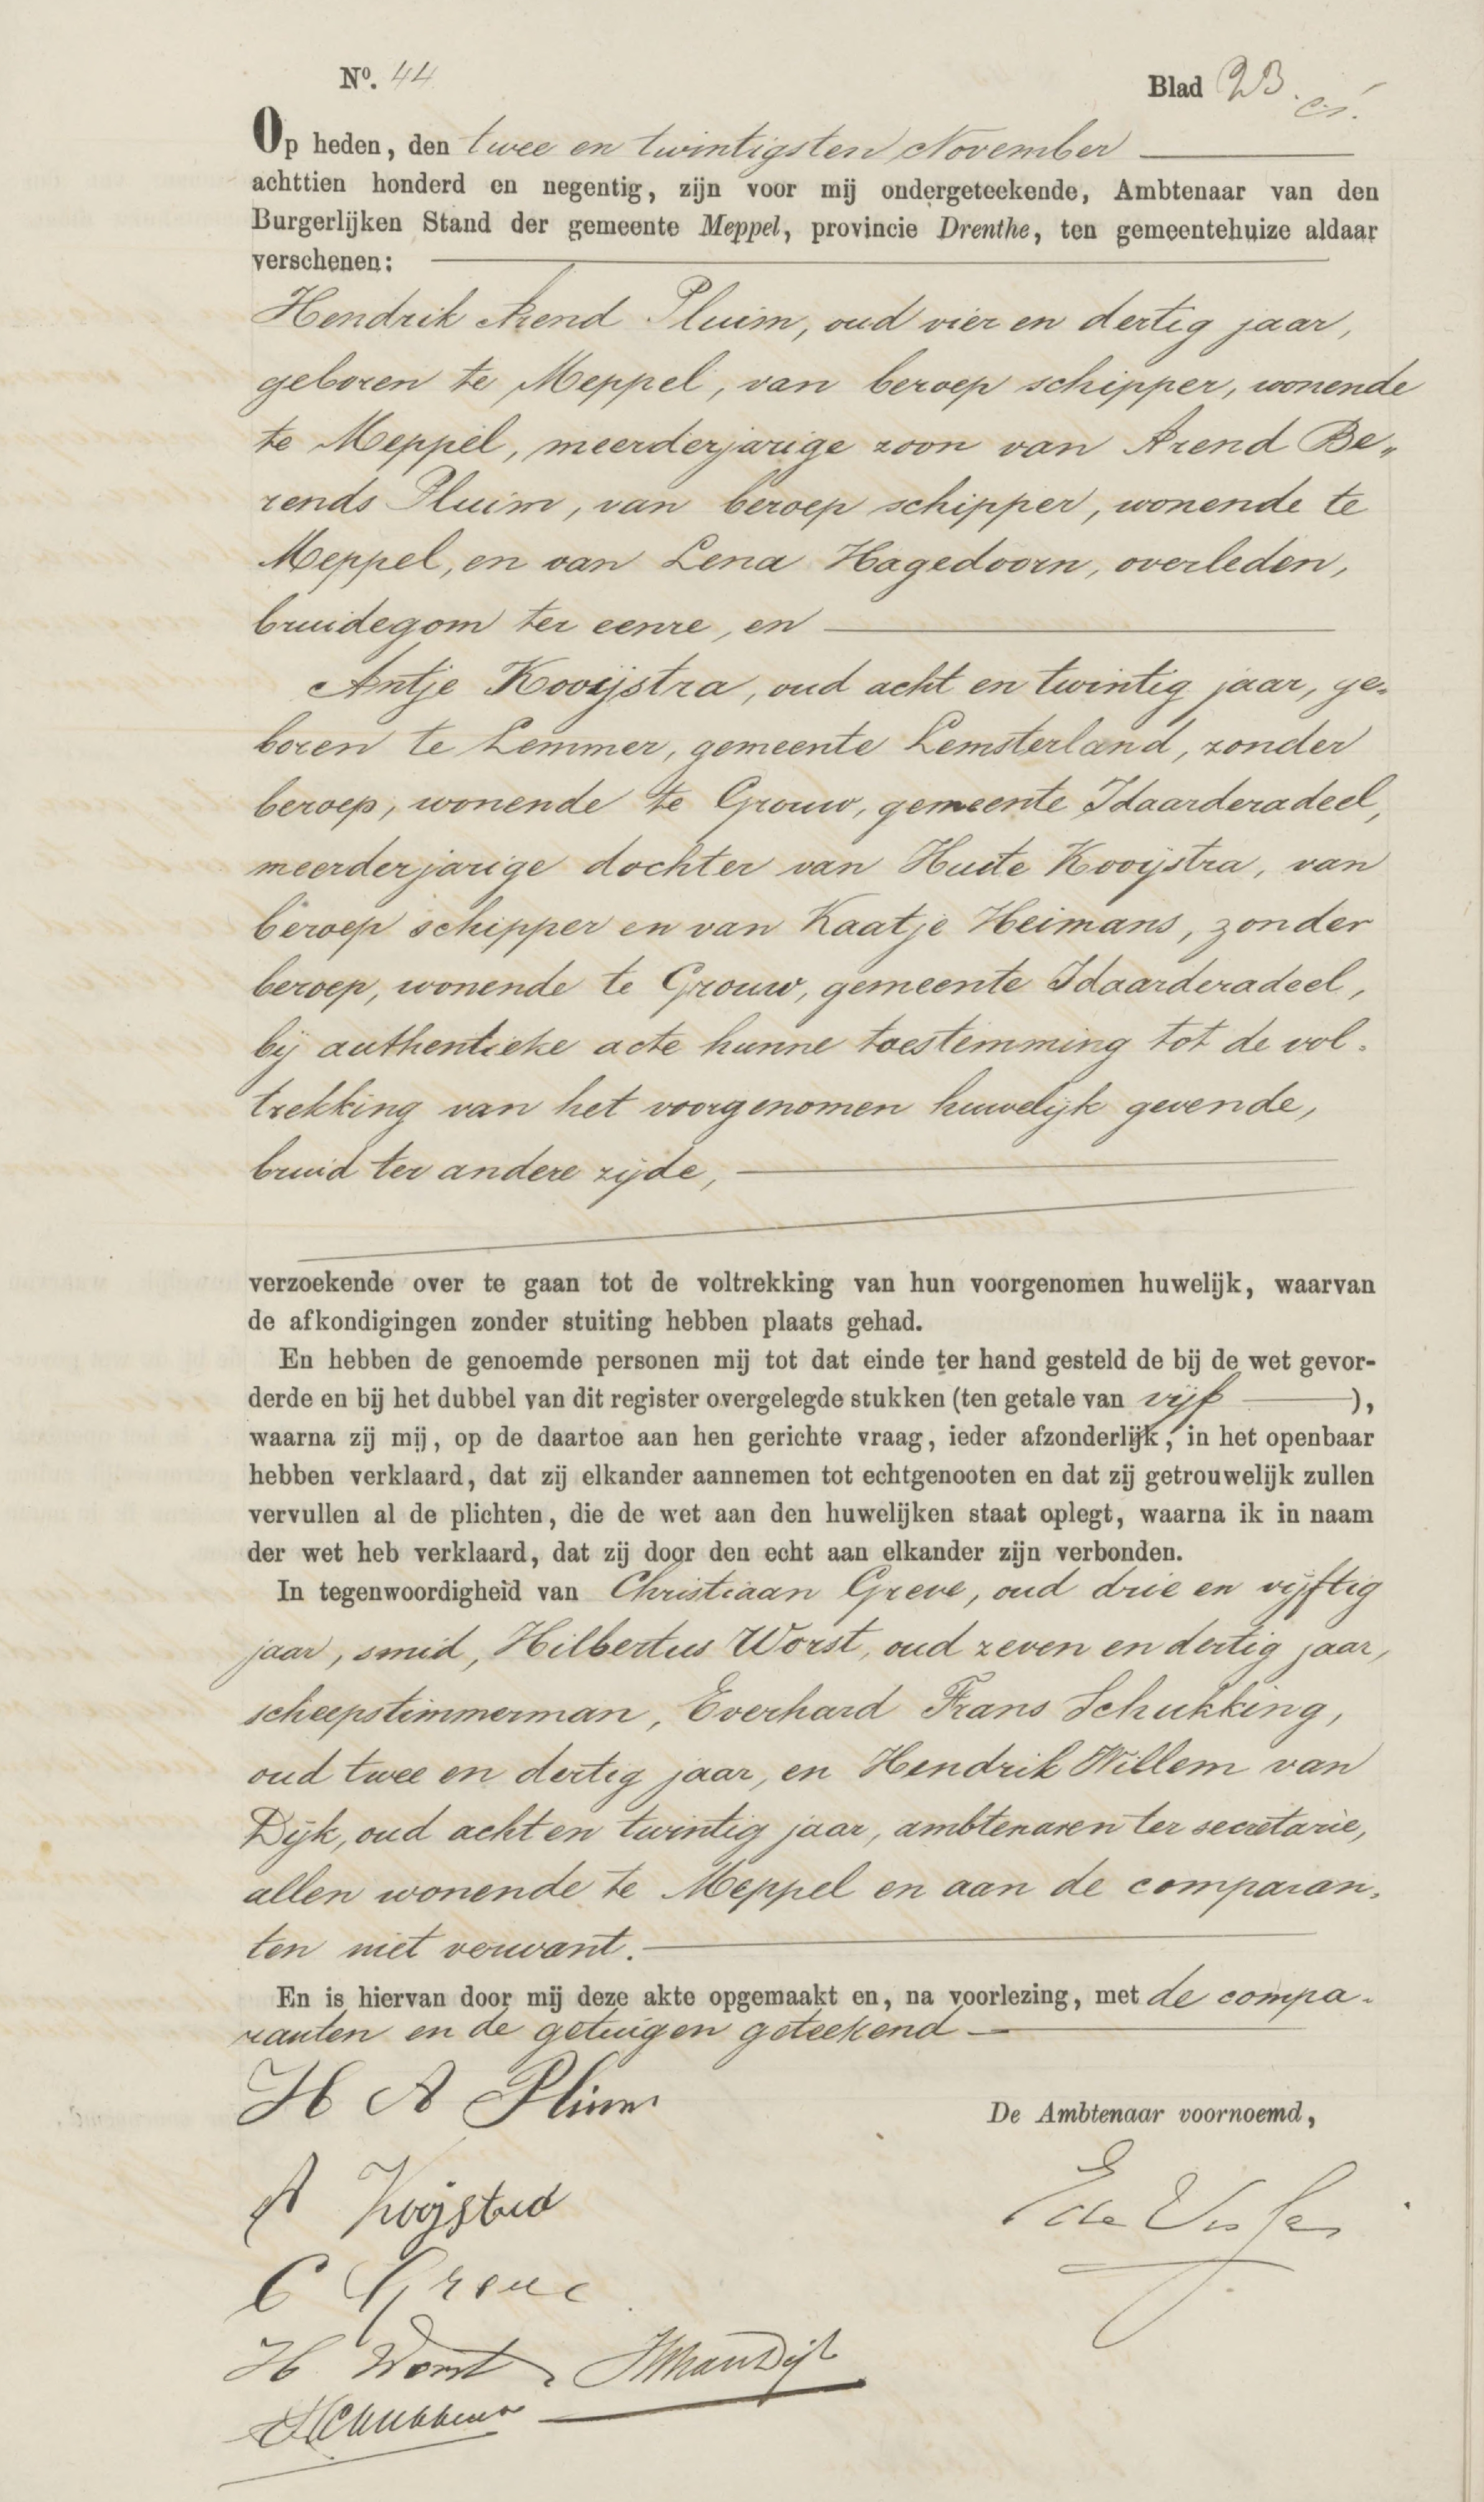 Nº. 44
Blad 23.
Op heden, den twee en twintigsten November
achttien honderd en negentig, zijn voor mij ondergeteekende, Ambtenaar van den
Burgerlijken Stand der gemeente Meppel, provincie Drenthe, ten gemeentehuize aldaar
verschenen:
Hendrik Arend Pluim, oud vier en dertig jaar,
geboren te Meppel, van beroep schipper, wonende
te Meppel, meerderjarige zoon van Arend Be„
rends Pluim, van beroep schipper, wonende te
Meppel, en van Lena Hagedoorn, overleden,
bruidegom ter eenre, en
Antje Kooijstra, oud acht en twintig jaar, ge-
boren te Lemmer, gemeente Lemsterland, zonder
beroep, wonende te Grouw, gemeente Idaarderadeel,
meerderjarige dochter van Huite Kooijstra, van
beroep schipper en van Kaatje Heimans, zonder
beroep, wonende te Grouw, gemeente Idaarderadeel,
bij authentieke acte hunne toestemming tot de vol-
trekking van het voorgenomen huwelijk gevende,
bruid ter andere zijde,
verzoekende over te gaan tot de voltrekking van hun voorgenomen huwelijk, waarvan
de afkondigingen zonder stuiting hebben plaats gehad.
En hebben de genoemde personen mij tot dat einde ter hand gesteld de bij de wet gevor-
derde en bij het dubbel van dit register overgelegde stukken (ten getale van vijf ),
waarna zij mij, op de daartoe aan hen gerichte vraag, ieder afzonderlijk, in het openbaar
hebben verklaard, dat zij elkander aannemen tot echtgenooten en dat zij getrouwelijk zullen
vervullen al de plichten, die de wet aan den huwelijken staat oplegt, waarna ik in naam
der wet heb verklaard, dat zij door den echt aan elkander zijn verbonden.
In tegenwoordigheid van Christiaan Greve, oud drie en vijftig
jaar, smid, Hilbertus Worst, oud zeven en dertig jaar,
scheepstimmerman, Everhard Frans Schukking,
oud twee en dertig jaar, en Hendrik Willem van
Dijk, oud acht en twintig jaar, ambtenaren ter secretarie,
allen wonende te Meppel en aan de comparan-
ten niet verwant.
En is hiervan door mij deze akte opgemaakt en, na voorlezing, met de compa-
ranten en de getuigen geteekend
H A Pluim
De Ambtenaar voornoemd,
A Kooijstra
E de Visser
C Greve
H Worst HWvanDijk
Schukking